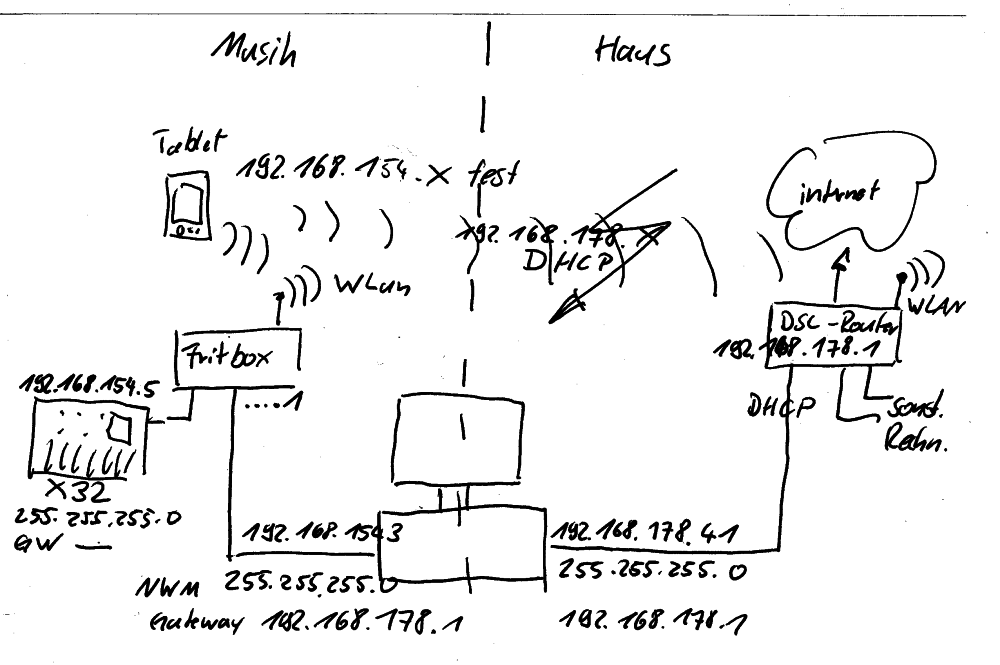 Musik
Haus
Tablet
192.168.154.X fest
192.168.178.X
DHCP
internet
WLan
WLAN
Fritbox
DSL-Router
192.168.178.1
192.168.154.5
....1
DHCP
sonst.
Rechn.
X32
255.255.255.0
GW —
192.168.154.3
192.168.178.41
NWM 255.255.255.0
255.255.255.0
Gateway 192.168.178.1
192.168.178.1